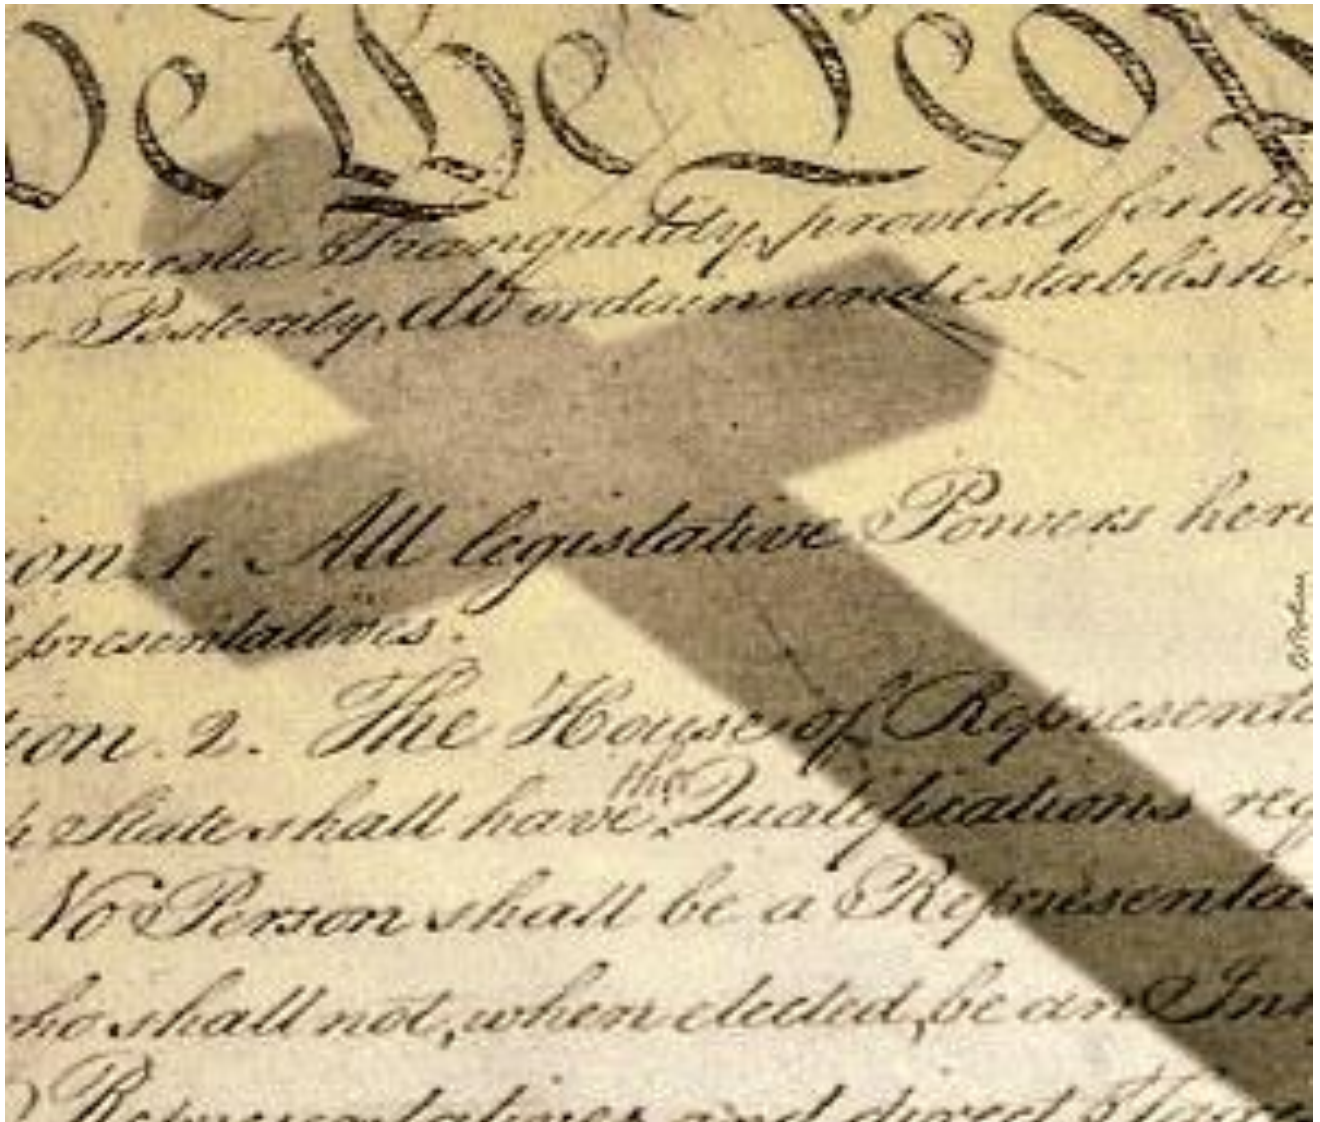 We the Peop
domestic Tranquility, provide for the
r Posterity, do ordain and establish
on 1. All legislative Powers here
epresentatives.
ion. 2. The House of Represent
h State shall have the Qualifications req
No Person shall be a Representat
ho shall not, when elected, be an In
Representatives and direct Taxes